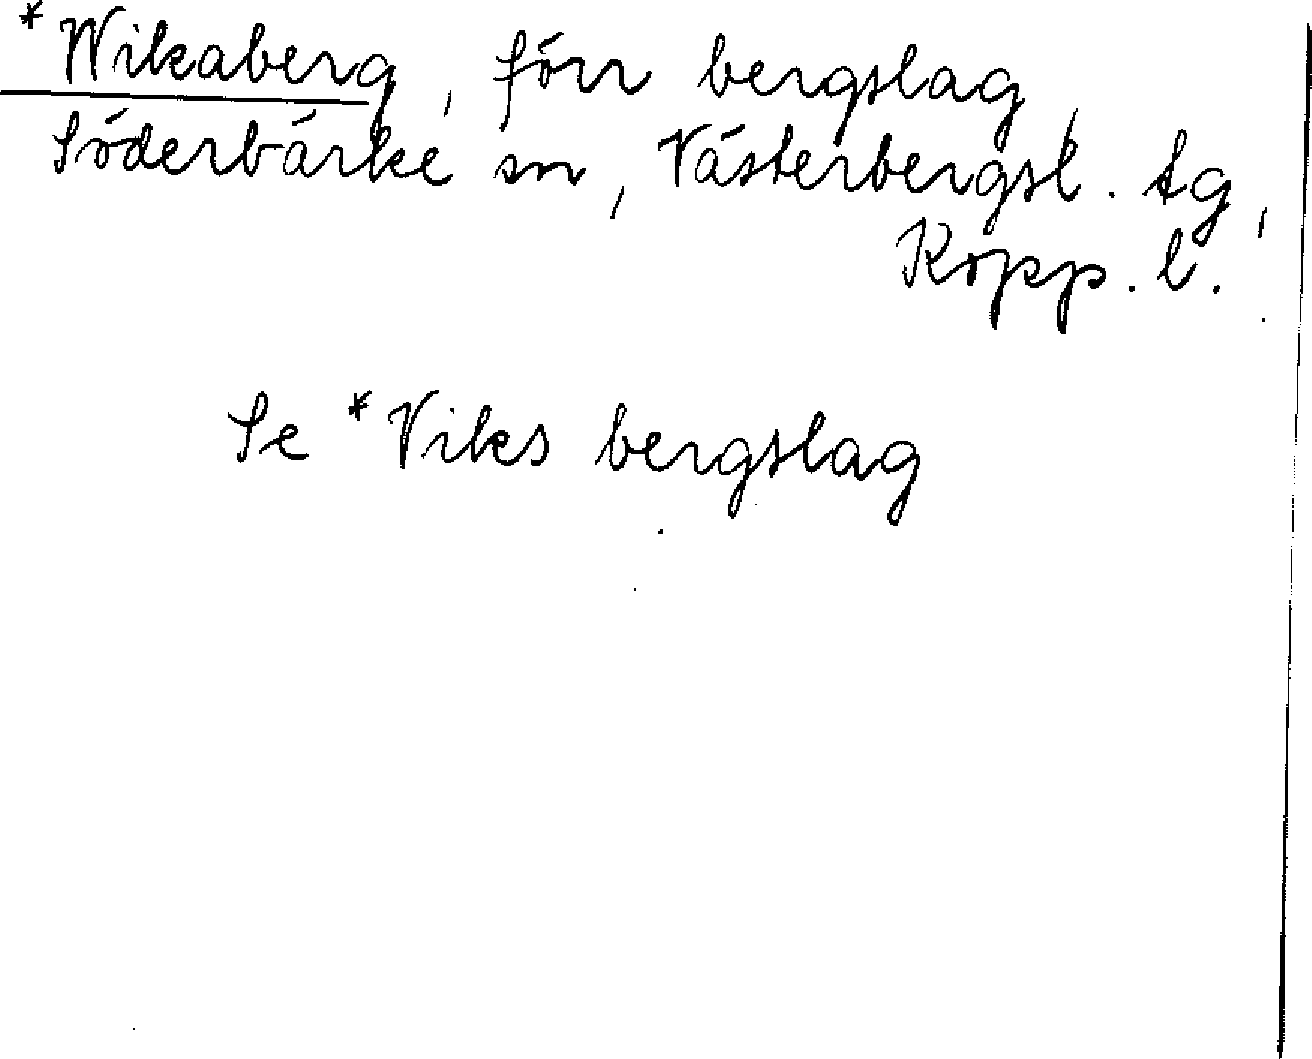 *Wikaberg, förr bergslag,
Söderbärke sn, Västerbergsl. tg,
Kopp. l.
Se *Viks bergslag